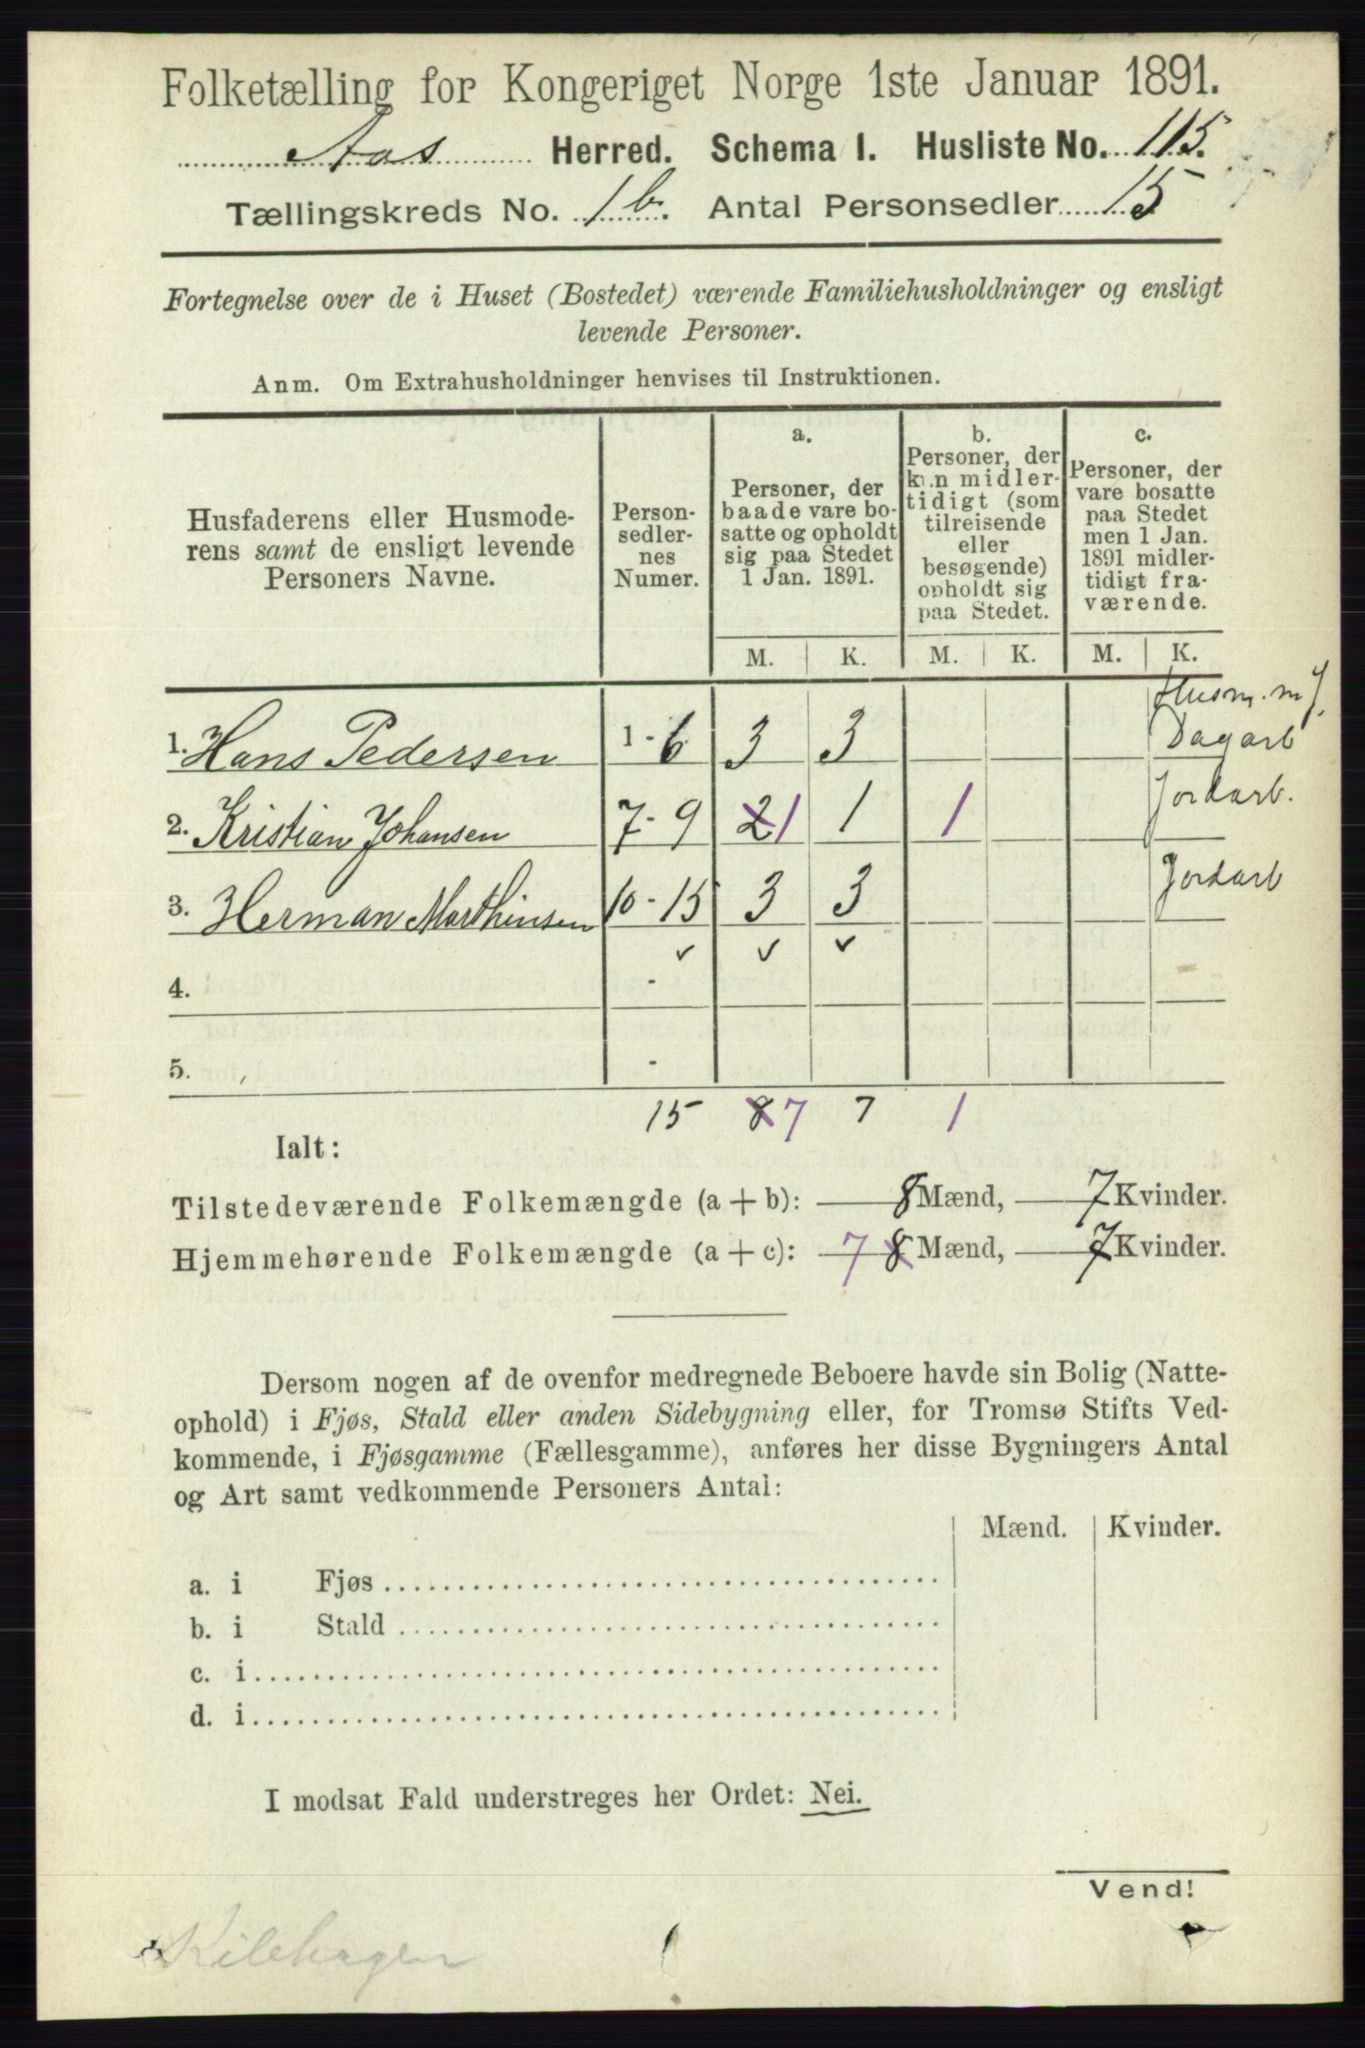 Folketælling for Kongeriget Norge 1ste Januar 1891.
Aas Herred. Schema I. Husliste No. 115.
Tællingskreds No. 1b. Antal Personsedler 15
Fortegnelse over de i Huset (Bostedet) værende Familiehusholdninger og ensligt
levende Personer.
Anm. Om Extrahusholdninger henvises til Instruktionen.
Husfaderens eller Husmode-
rens samt de ensligt levende
Personers Navne.
Person-
sedler-
nes
Numer.
a.
Personer, der
baade vare bo-
satte og opholdt
sig paa Stedet
1 Jan. 1891.
b.
Personer, der
kun midler-
tidigt (som
tilreisende
eller
besøgende)
opholdt sig
paa Stedet.
c.
Personer, der
vare bosatte
paa Stedet
men 1 Jan.
1891 midler-
tidigt fra-
værende.
M. K. M. K. M. K.
Husm. m J.
1. Hans Pedersen 1 - 6 3 3 Dagarb
2. Kristian Johansen 7 - 9 2 1 1 1 Jordarb.
3. Herman Marthinsen 10 - 15 3 3 Jordarb
4. -
5. -
15 8 7 7 1
Ialt:
Tilstedeværende Folkemængde (a + b): 8 Mænd, 7 Kvinder.
Hjemmehørende Folkemængde (a + c): 7 8 Mænd, 7 Kvinder.
Dersom nogen af de ovenfor medregnede Beboere havde sin Bolig (Natte-
ophold) i Fjøs, Stald eller anden Sidebygning eller, for Tromsø Stifts Ved-
kommende, i Fjøsgamme (Fællesgamme), anføres her disse Bygningers Antal
og Art samt vedkommende Personers Antal:
Mænd. Kvinder.
a. i Fjøs
b. i Stald
c. i
d. i
I modsat Fald understreges her Ordet: Nei.
Vend!
Kilehagen